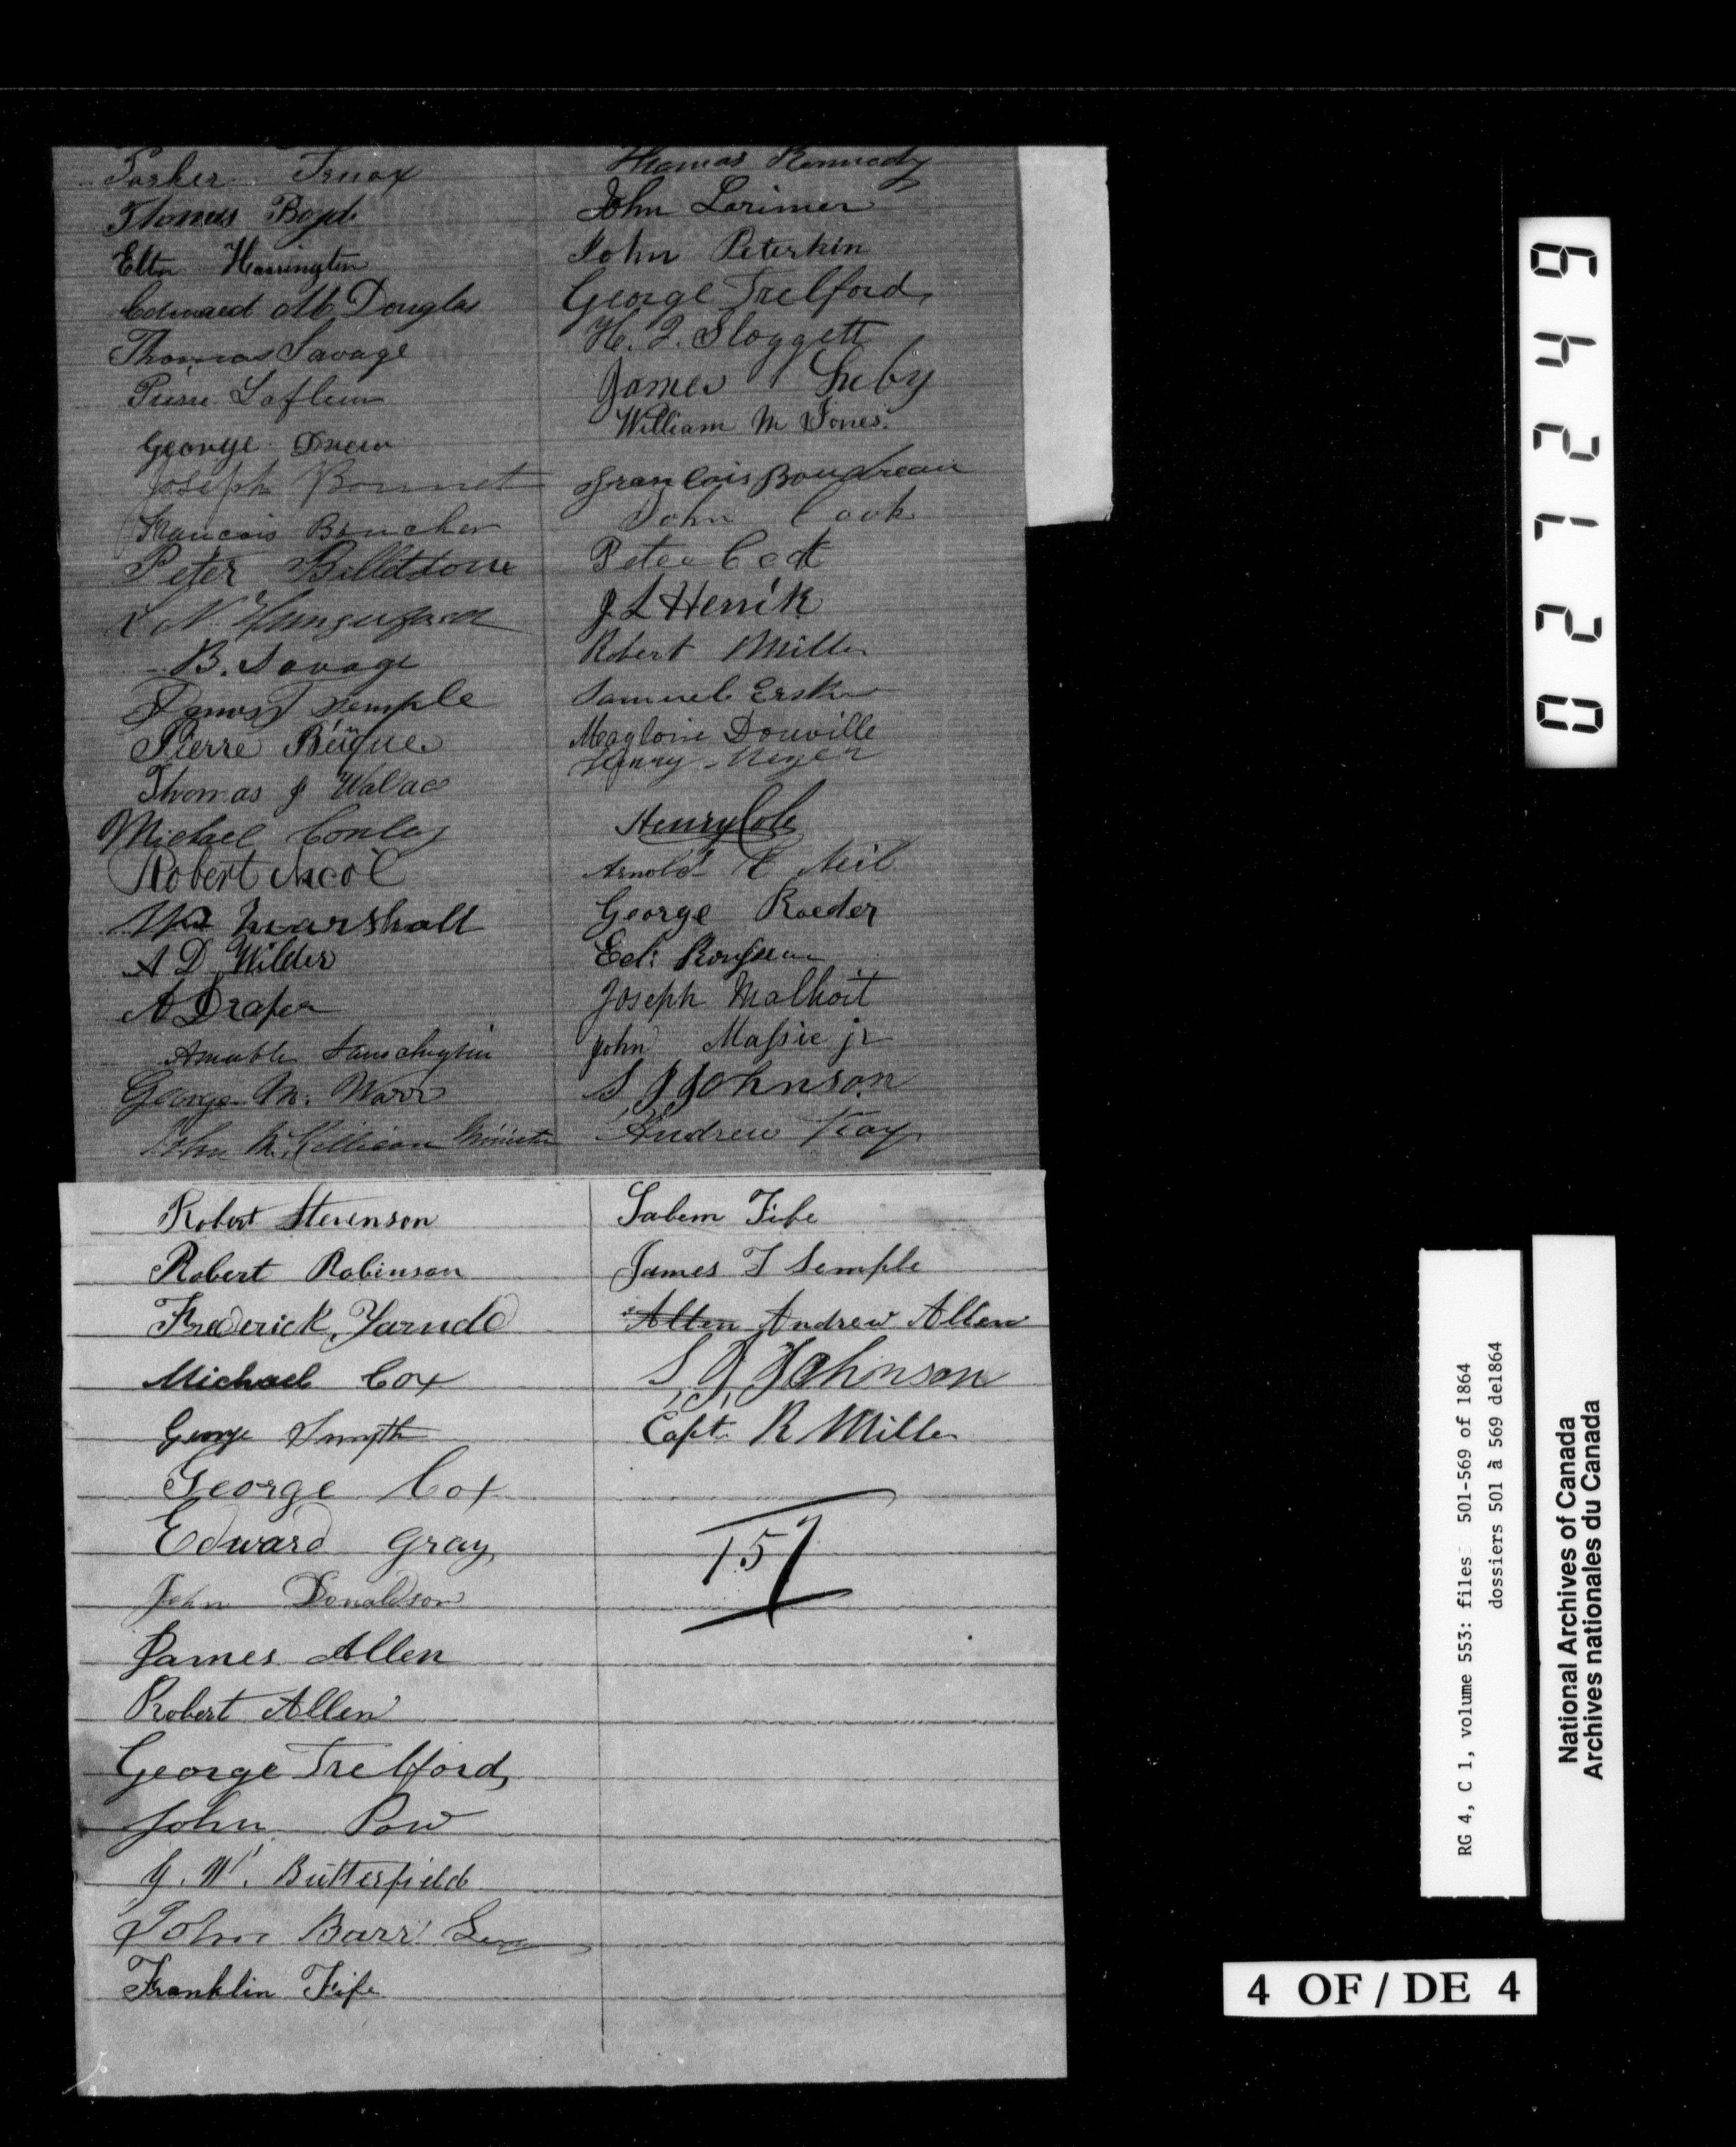 Parker Truax
Thomas Boyd
Elton Harrington
Edward M Douglas
Thomas Savage
Pierre Lafleur
George Drew
Joseph Bonnet
Francois Boucher
Peter
L N Hungerford
B. Savage
Semple
Pierre Béïque
Thomas J Walace
Michael Conley
Robert Nicol
Wm Marshall
A D Wilder
A Draper
Amable
George M. Warr
John McKillican Minister
Thomas Kennedy
John Lorimer
John Peterkin
George Trelford
H. J. Sloggett
James
William M Jones
Francois Boudreau
John Cook
Peter
J L Herrik
Robert Miller
Samuel Erskin
Magloire Douville
Henry Meyer
Henry Cole
Arnold Neil
George Roeder
Ed:
Joseph Malhoit
John Massie jr
S J Johnson
Andrew Kay
Robert Stevenson
Robert Robinson
Frederick Yarndl
Michael Cox
George Smyth
George Cox
Edward Gray
John Donaldson
James Allen
Robert Allen
George Trelford
John Pow
J. W. Butterfield
John Barr Sen
Franklin Fife
Salem Fife
James T Semple
Allen Andrew Allen
S J Johnson
Capt R Miller
157
027249
RG 4, C 1, volume 553: files 501-569 of 1864
dossiers 501 à 569 de1864
National Archives of Canada
Archives nationales du Canada
4 OF / DE 4